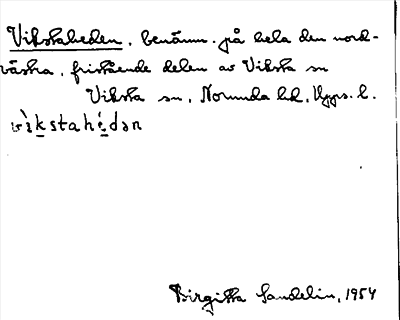 Vikstaheden, benämn. på hela den nord-
västra, fristående delen av Viksta sn
Viksta sn, Norunda hd, Upps. l.
vìkstahédən
Birgitta Sandelin, 1954